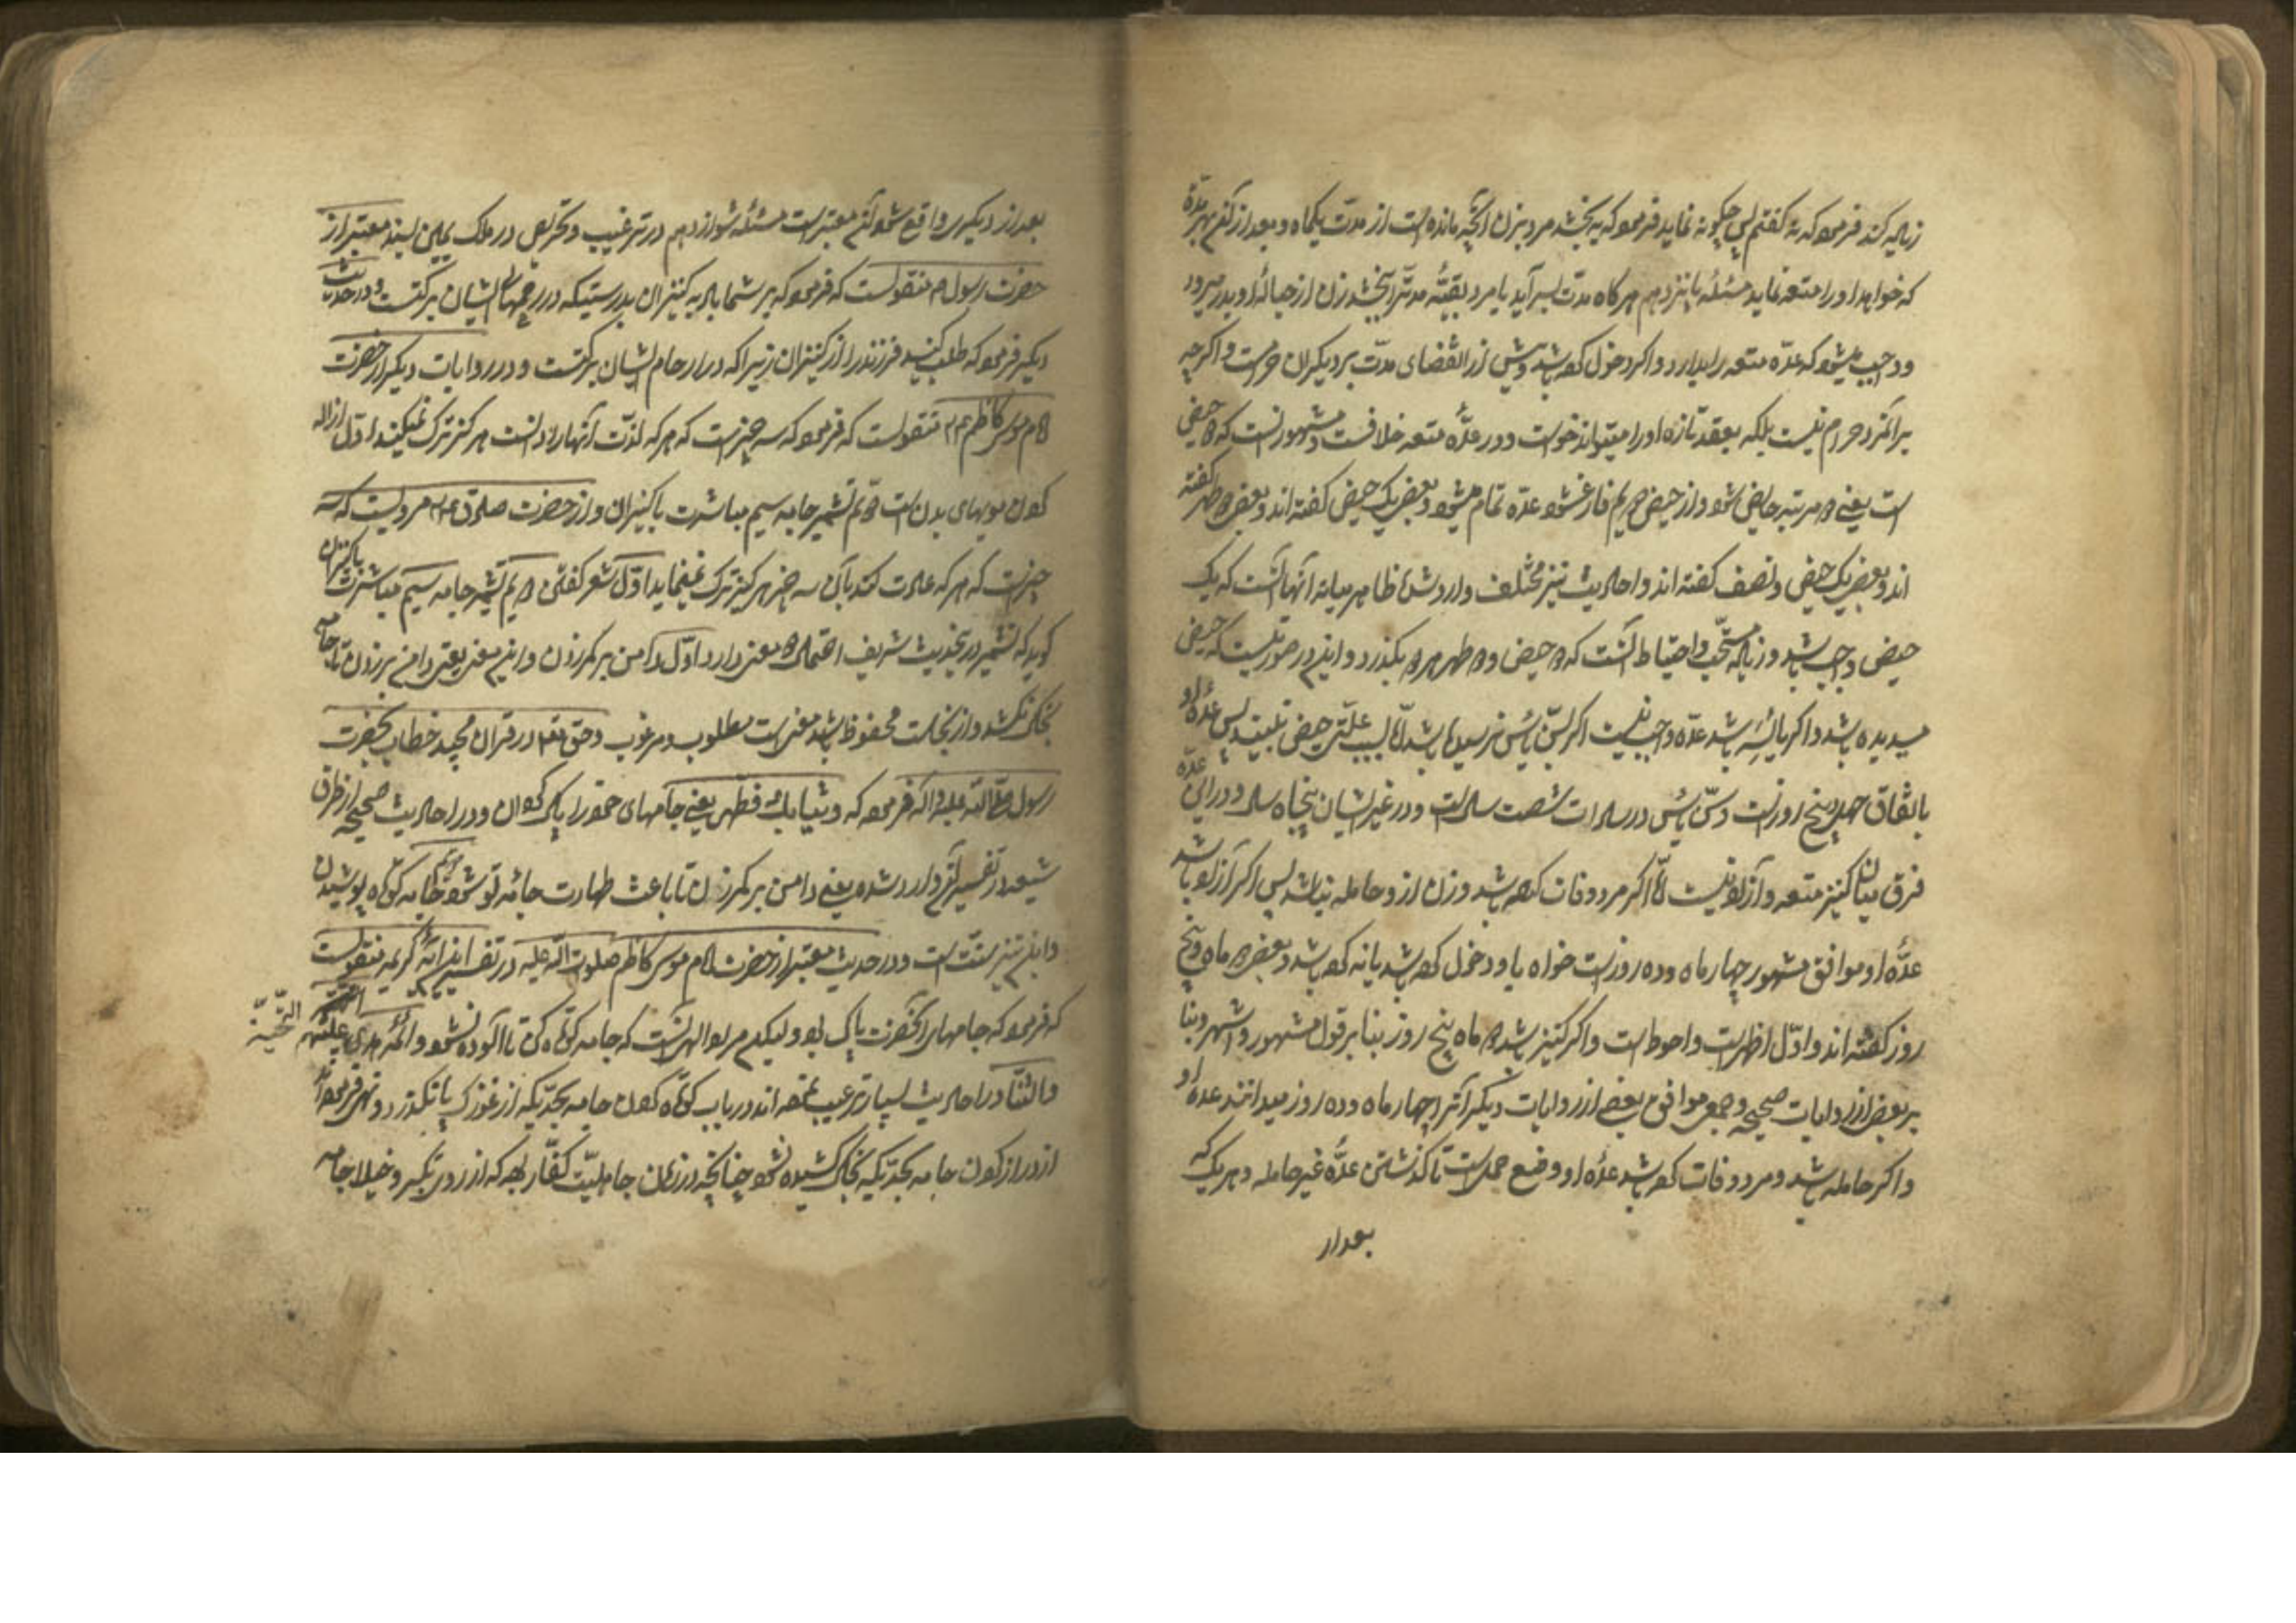 زیاد کند فرمود که نه گفتم پس چگونه نماید فرمود که به بخشد مرد بزن آنچه مانده است از مدت یکماه و بعد از آن بهر مدة
که خواهد او را متعه نماید مسئله پانزدهم هر گاه مدت بسر آید یا مرد بقیهٔ مدت را بخشد زن از حبالهٔ او بدر میرود
و واجب میشود که عدّه متعه را بدارد و اگر دخول کرده باشد و پیش از انقضای مدّت بر دیگران حرامست و اگر چه
بر آنمرد حرام نیست بلکه بعقد تازه او را میتواند خواست و در عدّهٔ متعه خلافست و مشهور آنست که دو حیض
است یعنی دو مرتبه حایض شود و از حیض دویم فارغ شود عدّه تمام میشود و بعضی یک حیض گفته اند و بعضی دو طهر گفته
اند و بعضی یک حیض و نصف گفته اند و احادیث نیز مختلف وارد شده ظاهر میانهٔ آنها آنست که یک
حیض واجب باشد و زیاده مستحب و احتیاط آنست که دو حیض و دو طهر هر دو بگذرد و این در صورتیست که حیض
میدیده باشد و اگر یائسه باشد عدّه واجب نیست و اگر بسنّ یأس نرسیده باشد امّا بسبب علّتی حیض نبیند پس عدّهٔ او
باتفاق چهل و پنج روز است و سنّ یأس در سادات شصت سال است و در غیر ایشان پنجاه سال و در این عدّه
فرق میان کنیز متعه و آزاد نیست امّا اگر مرد وفات کرده باشد و زن از او حامله نباشد پس اگر آزاد باشد
عدّهٔ او موافق مشهور چهار ماه و ده روز است خواه باو دخول کرده باشد یا نه کرده باشد و بعضی دو ماه و پنج
روز گفته اند و اوّل اظهر است و احوط است و اگر کنیز باشد دو ماه پنج روز بنا بر قول مشهور و اشهر و بنا
بر بعضی از روایات صحیحه و جمعی موافق بعضی از روایات دیگر آنرا چهار ماه و ده روز میدانند عدهٔ او
و اگر حامله باشد و مرد وفات کرده باشد عدّهٔ او وضع حملست تا گذشتن عدّهٔ غیر حامله و هر یک که
بعد از
بعد از دیگری واقع شود آن معتبر است مسئله شوازدهم در ترغیب و تحریص در ملک یمین بسند معتبر از
حضرت رسول ص منقولست که فرمود که بر شما باد به کنیزان بدرستیکه در رحمهای ایشان برکتست و در حدیث
دیگر فرمود که طلب کنید فرزند را از کنیزان زیرا که در ارحام ایشان برکتست و در روایات دیگر از حضرت
امام موسی کاظم ع منقولست که فرمود که سه چیز است که هر که لذّت آنها را دانست هرگز ترک نمیکند اوّل ازاله
کردن مویهای بدن است دویم تشمیر جامه سیم مباشرت با کنیزان و از حضرت صادق ع مرویست که سه
چیز است که هر که عادت کند بآن سه چیز هرگز ترک نمینماید اوّل شعر گفتن دویم تشمیر جامه سیم مباشرت با کنیزان
گوید که تشمیر در حدیث شریف احتمال دو معنی دارد اوّل دامن بر کمر زدن و این معنی یعنی دامن بر زدن تا جامه
بخاک نکشد و از نجاست محفوظ باشد معنی است مطلوب و مرغوب و حق تعالی در قرآن مجید خطاب بحضرت
رسول صلی الله علیه و آله فرموده که و ثیابک فطهر یعنی جامهای خود را پاک گردان و در احادیث صحیحه از طرق
شیعه در تفسیر آن وارد شده یعنی دامن بر کمر زن تا باعث طهارت جامهٔ تو شود دویم جامه کوتاه پوشیدن
و این نیز سنّت است و در حدیث معتبر از حضرت امام موسی کاظم صلوات الله علیه در تفسیر این آیهٔ کریمه منقولست
که فرمود که جامهای آنحضرت پاک بود و لیکن مراد الهی آنست که جامه کوتاه کن تا آلوده نشود و ائمّه هدی علیهم التحیّة
و الثناء در احادیث بسیار ترغیب نموده اند در باب کوتاه کردن جامه بحدّیکه از غوزک پا نگذرد و نهی فرموده اند
از دراز کردن جامه بحدّیکه بخاک کشیده شود چنانچه در زمان جاهلیّت کفّار بود که از روی تکبر و خیلا جامه